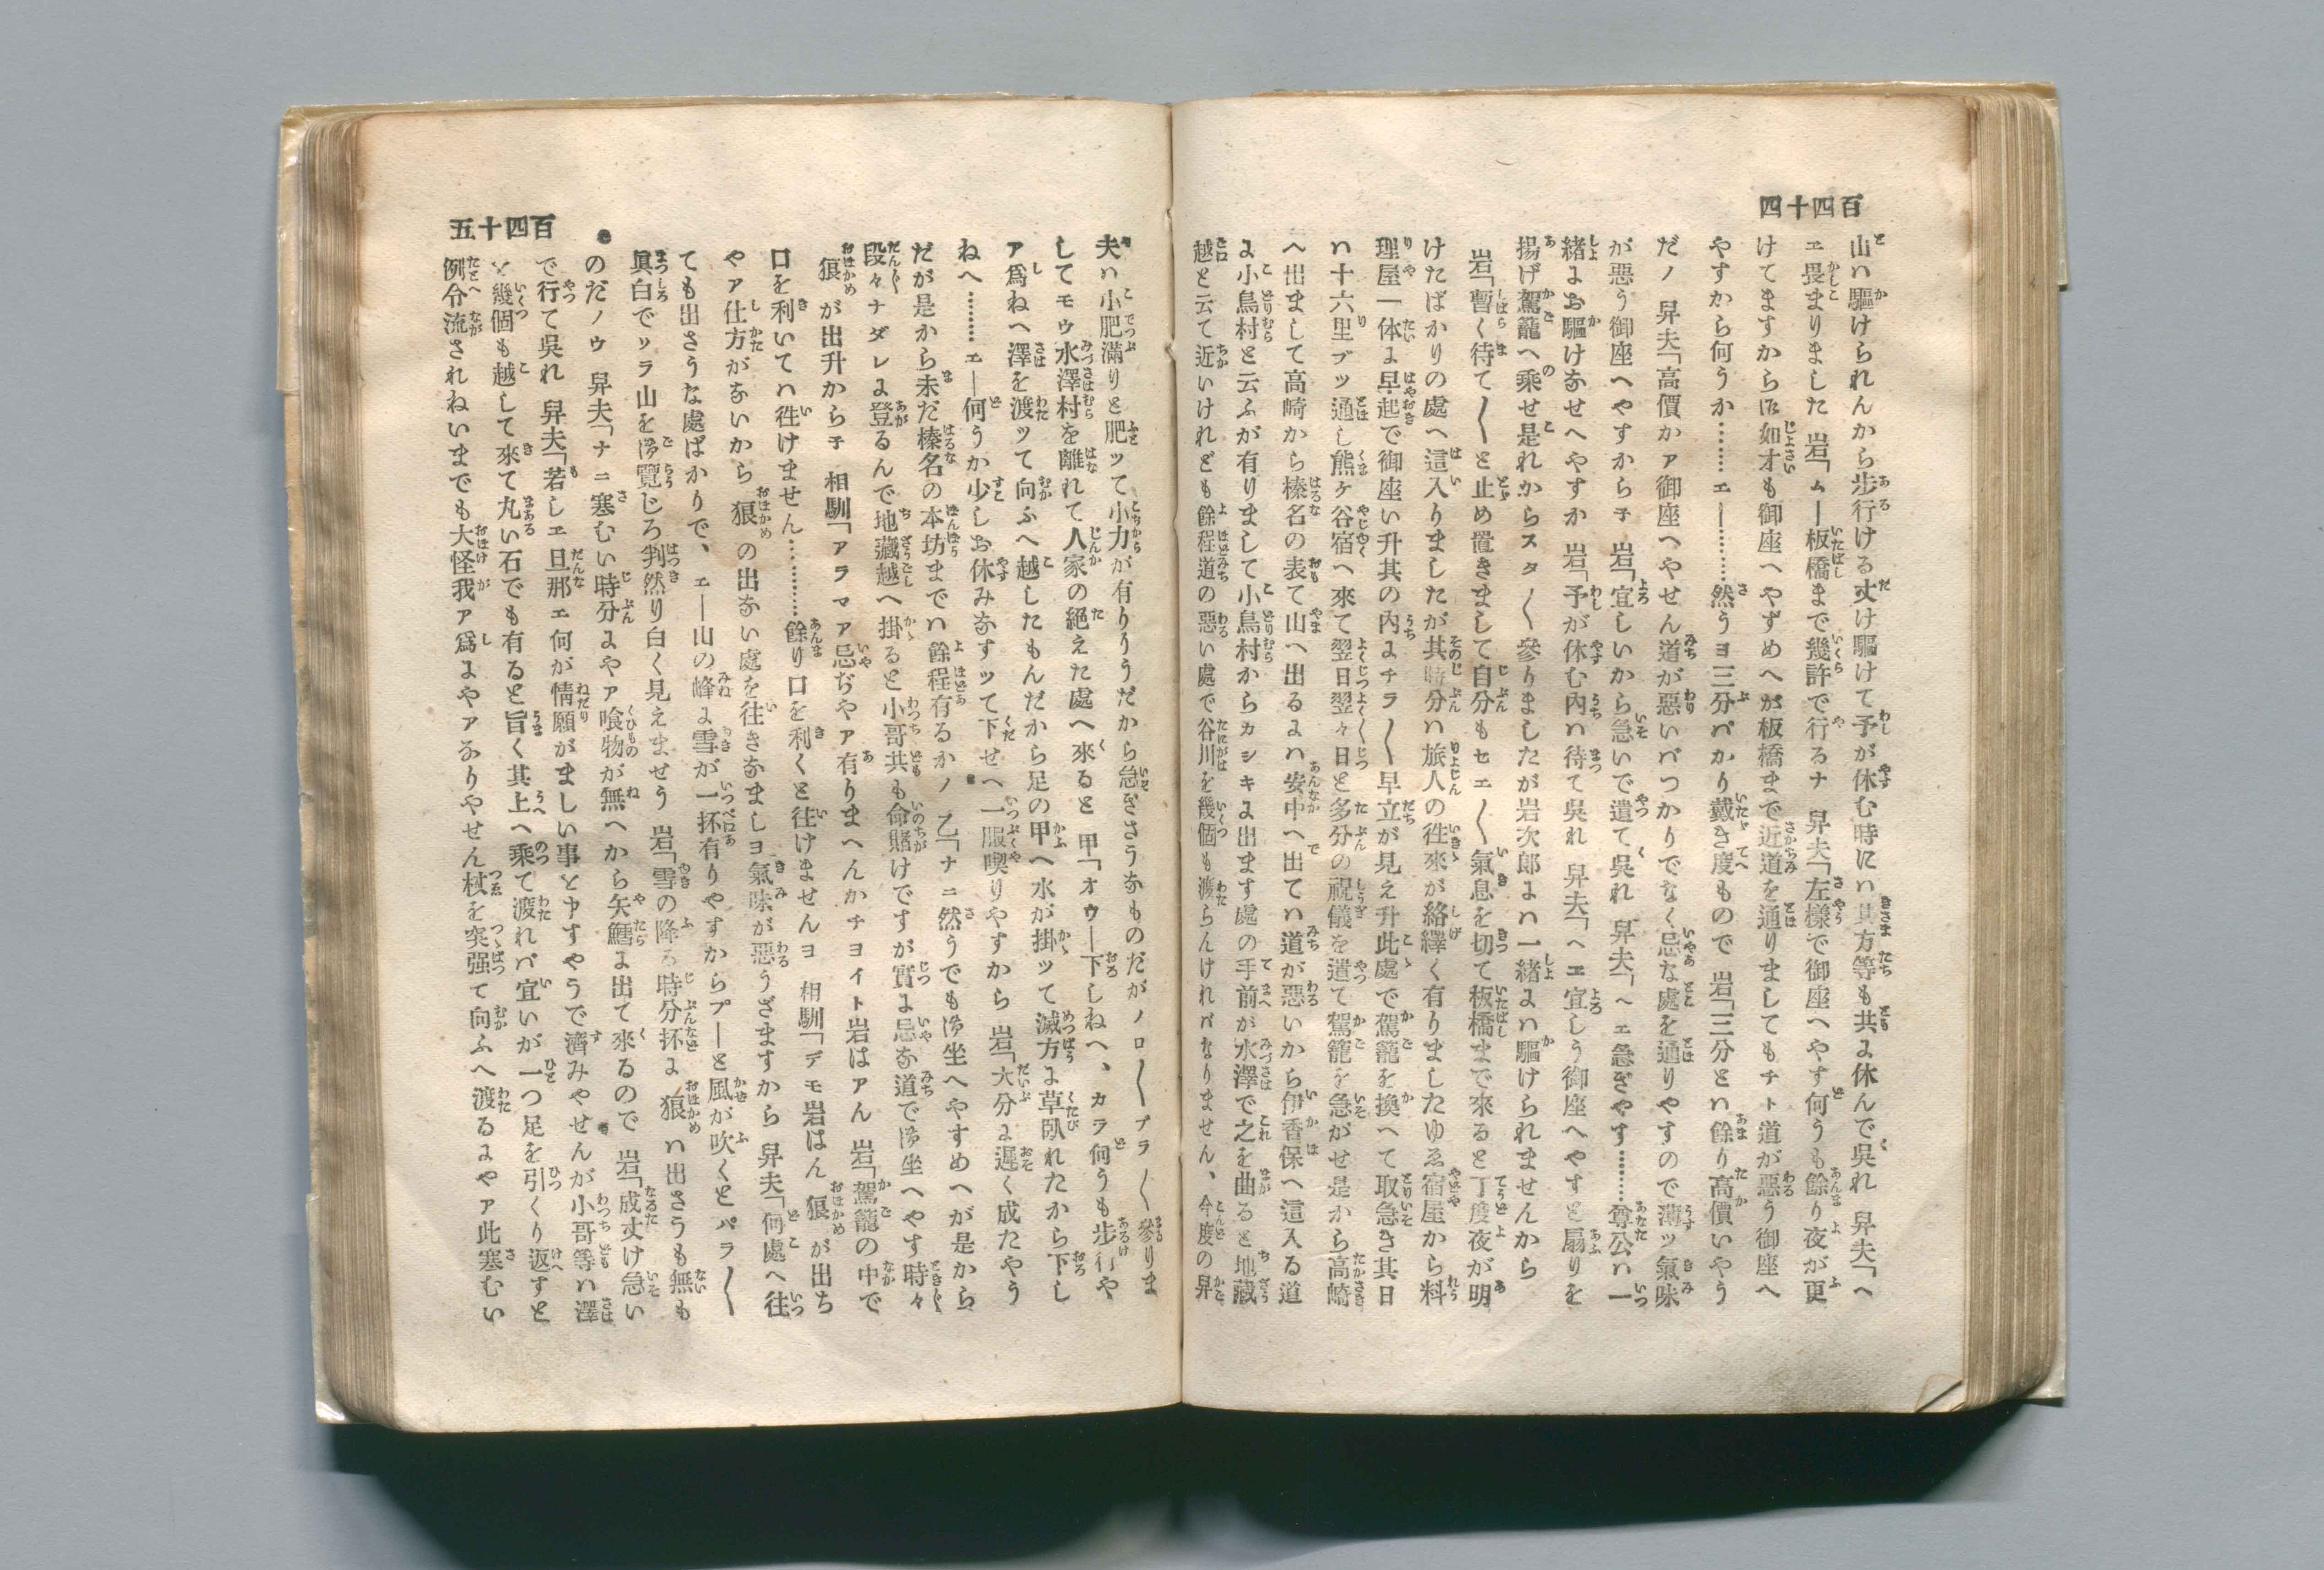 百四十四
山ハ驅けられんから歩行ける丈け驅けて予が休む時にハ其方等も共よ休んで呉れ 舁夫「ヘ
エ畏まりました 岩「ムー板橋まで幾許で行るナ 舁夫「左様で御座へやす何うも餘り夜が更
けてますからば如才も御座へやずめへが板橋まで近道を通りましてもチト道が悪う御座へ
やすから何うか………エー………然うヨ三分バかり戴き度もので 岩「三分とハ餘り高價いやう
だノ 舁夫「高價かァ御座へやせん道が悪いバつかりでなく忌な處を通りやすので薄ッ氣味
が悪う御座へやすから子 岩「宜しいから急いで遣て呉れ 舁夫「ヘエ急ぎやす………尊公ハ一
緒よお驅けなせへやすか 岩「予が休む内ハ待て呉れ 舁夫「ヘエ宜しう御座へやすと扇りを
揚げ駕籠へ乗せ是れからスタ〱參りましたが岩次郎よハ一緒よハ驅けられませんから
岩「暫く待て〱と止め置きまして自分もセエ〱氣息を切て板橋まで來ると丁度夜が明
けたばかりの處へ這入りましたが其時分ハ旅人の徃來が絡繹く有りましたゆゑ宿屋から料
理屋一体よ早起で御座い升其の内よチラ〱早立が見え升此處で駕籠を換へて取急き其日
ハ十六里ブッ通し熊ヶ谷宿へ來て翌日翌々日と多分の祝儀を遣て駕籠を急がせ是から高崎
へ出まして高崎から榛名の表て山へ出るよハ安中へ出てハ道が悪いから伊香保へ這入る道
よ小鳥村と云ふが有りまして小鳥村からカシキよ出ます處の手前が水澤で之を曲ると地藏
越と云て近いけれども餘程道の悪い處で谷川を幾個も渡らんけれバなりません、今度の舁
夫ハ小肥滿りと肥ッて小力が有りうだから急ぎさうなものだがノロ〱ブラ〱參りま
してモウ水澤村を離れて人家の絶えた處へ來ると 甲「オウー下しねへ、カラ何うも歩行や
ァ爲ねへ澤を渡ッて向ふへ越したもんだから足の甲へ水が掛ッて滅方よ草臥れたから下し
ねへ………エー何うか少しお休みなすッて下せへ一服喫りやすから 岩「大分よ遲く成たやう
だが是から未だ榛名の本坊までハ餘程有るかノ 乙「ナニ然うでも御坐へやすめへが是から
段々ナダレよ登るんで地藏越へ掛ると小哥共も命賭けですが實よ忌な道で御坐へやす時々
狼が出升から子 相馴「アラマア忌ぢやァ有りまへんかチヨイト岩はアん 岩「駕籠の中で
口を利いてハ徃けません…………餘り口を利くと徃けませんヨ 相馴「デモ岩はん狼が出ち
やァ仕方がないから狼の出ない處を往きなましヨ氣味が悪うざますから 舁夫「何處へ往
ても出さうな處ばかりで、エー山の峰よ雪が一抔有りやすからプーと風が吹くとパラ〱
眞白でッラ山を御覽じろ判然り白く見えませう 岩「雪の降る時分抔よ狼ハ出さうも無も
のだノウ 舁夫「ナニ寒むい時分よやァ喰物が無へから矢鱈よ出て來るので 岩「成丈け急い
で行て呉れ 舁夫「若しエ旦那エ何が情願がましい事と申すやうで濟みやせんが小哥等ハ澤
を幾個も越して來て丸い石でも有ると旨く其上へ乗て渡れバ宜いが一つ足を引くり返すと
例令流されねいまでも大怪我ァ爲よやァなりやせん杖を突强て向ふへ渡るよやァ此寒むい
百四十五